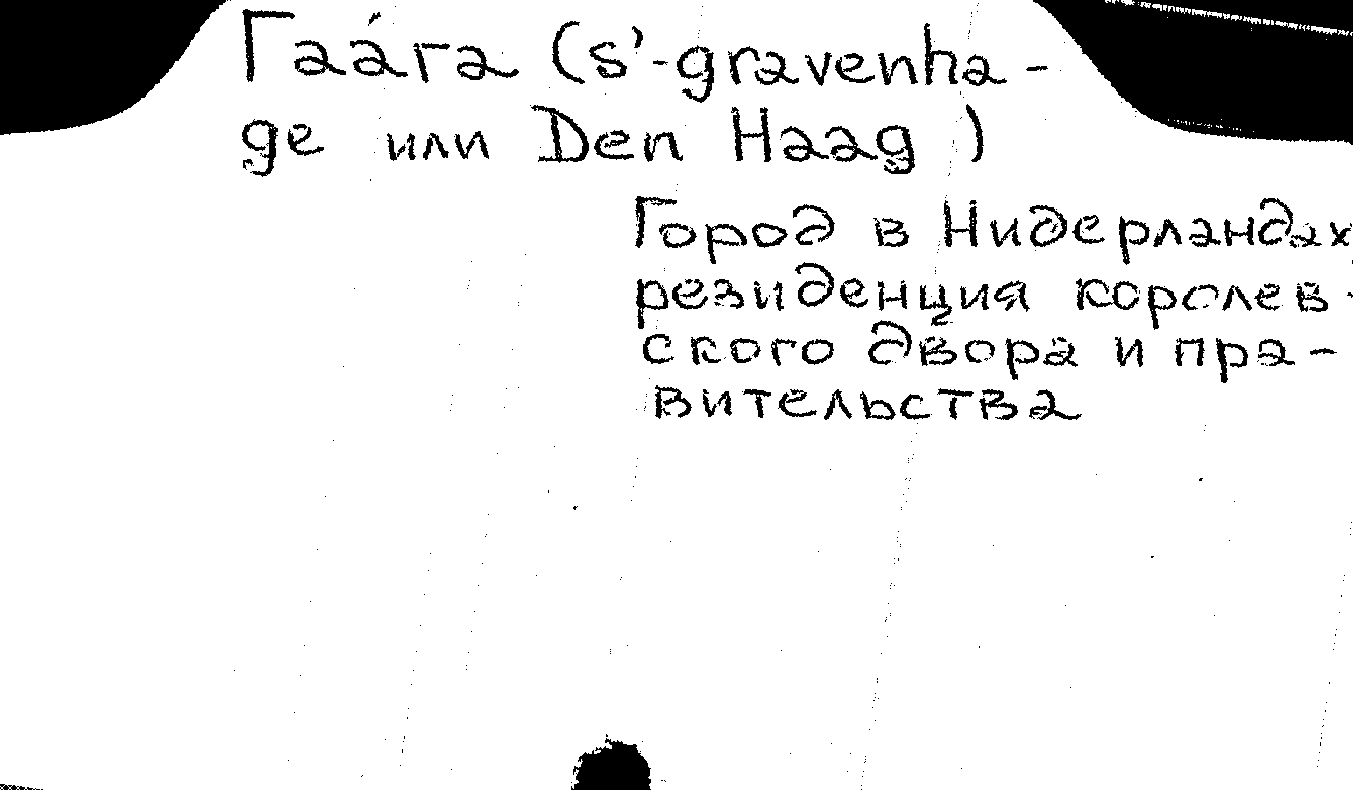 Гаáга (s'-gravenha-
ge или Den Haag )
Город в Нидерландах
резиденция королев-
ского двора и пра-
вительства